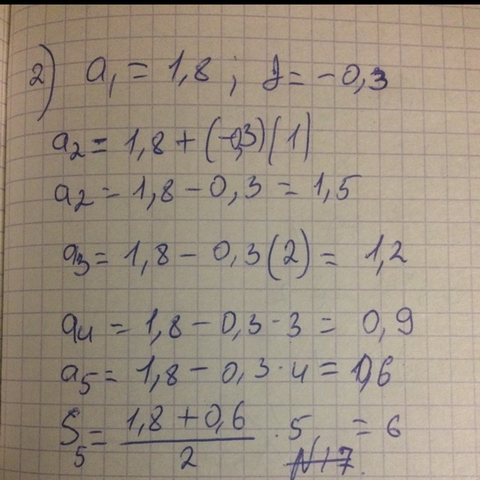 2) a₁ = 1,8 ; d = -0,3
a₂ = 1,8 + (-0,3)(1)
a₂ = 1,8 - 0,3 = 1,5
a₃ = 1,8 - 0,3(2) = 1,2
a₄ = 1,8 - 0,3 · 3 = 0,9
a₅ = 1,8 - 0,3 · 4 = 0,6
S₅ = (1,8 + 0,6)/2 · 5 = 6
N17.